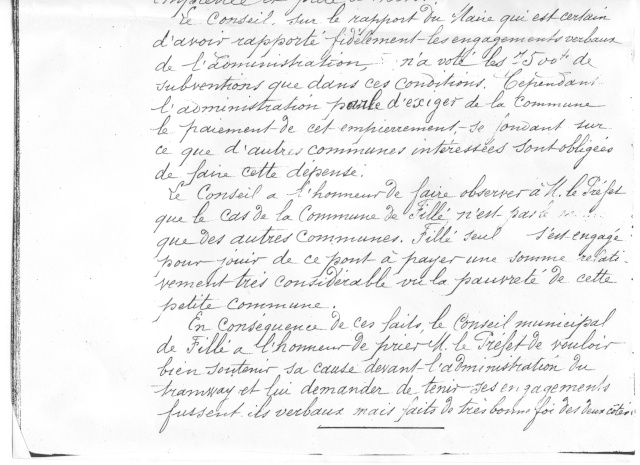 Le Conseil, sur le rapport du Maire qui est certain
d'avoir rapporté fidèlement les engagements verbaux
de l'administration, n'a voté les 7500 f de
subventions que dans ces conditions. Cependant
l'administration parle d'exiger de la Commune
le paiement de cet empierrement, se fondant sur
ce que d'autres communes intéressées sont obligées
de faire cette dépense.
Le Conseil a l'honneur de faire observer à M. le Préfet
que le cas de la Commune de Fillé n'est pas le
que des autres communes. Fillé seul s'est engagé
pour jouir de ce pont à payer une somme relati-
vement très considérable vu la pauvreté de cette
petite commune.
En conséquence de ces faits, le Conseil municipal
de Fillé a l'honneur de prier M. le Préfet de vouloir
bien soutenir sa cause devant l'administration du
tramway et lui demander de tenir ses engagements
fussent-ils verbaux mais faits de très bonne foi des deux côtés.